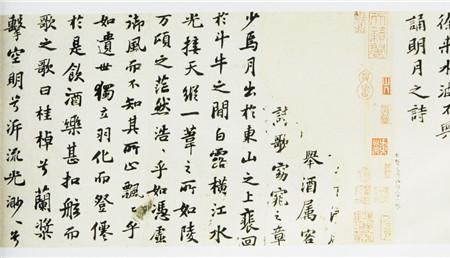 徐来水波不興
誦明月之詩
舉酒属客
詩歌窈窕之章
少焉月出於東山之上裵回
於斗牛之間白露橫江水
光接天縱一葦之所如陵
万頃之茫然浩〻乎如憑虚
御風而不知其所止飄〻乎
如遺世獨立羽化而登僊
於是飲酒樂甚扣舷而
歌之歌曰桂棹兮蘭槳
擊空明兮泝流光渺〻兮